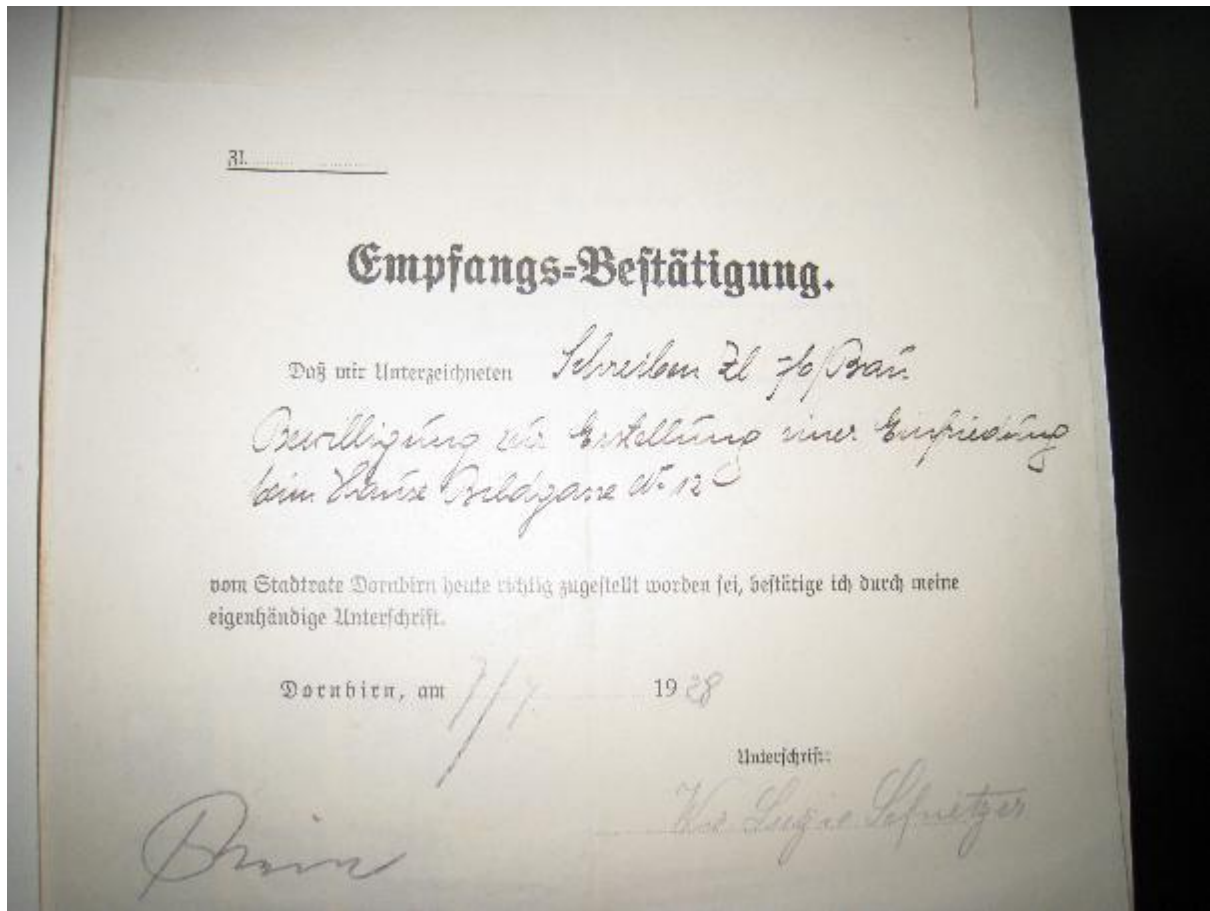 Zl.
Empfangs=Bestätigung.
Daß mir Unterzeichneten Schreiben Zl 76/Bau
Bewilligung zur Erstellung einer Einfriedung
beim Hause Bildgasse No 12
vom Stadtrate Dornbirn heute richtig zugestellt worden sei, bestätige ich durch meine
eigenhändige Unterschrift.
Dornbirn, am 7/7. 1928
Unterschrift:
Schnetzer